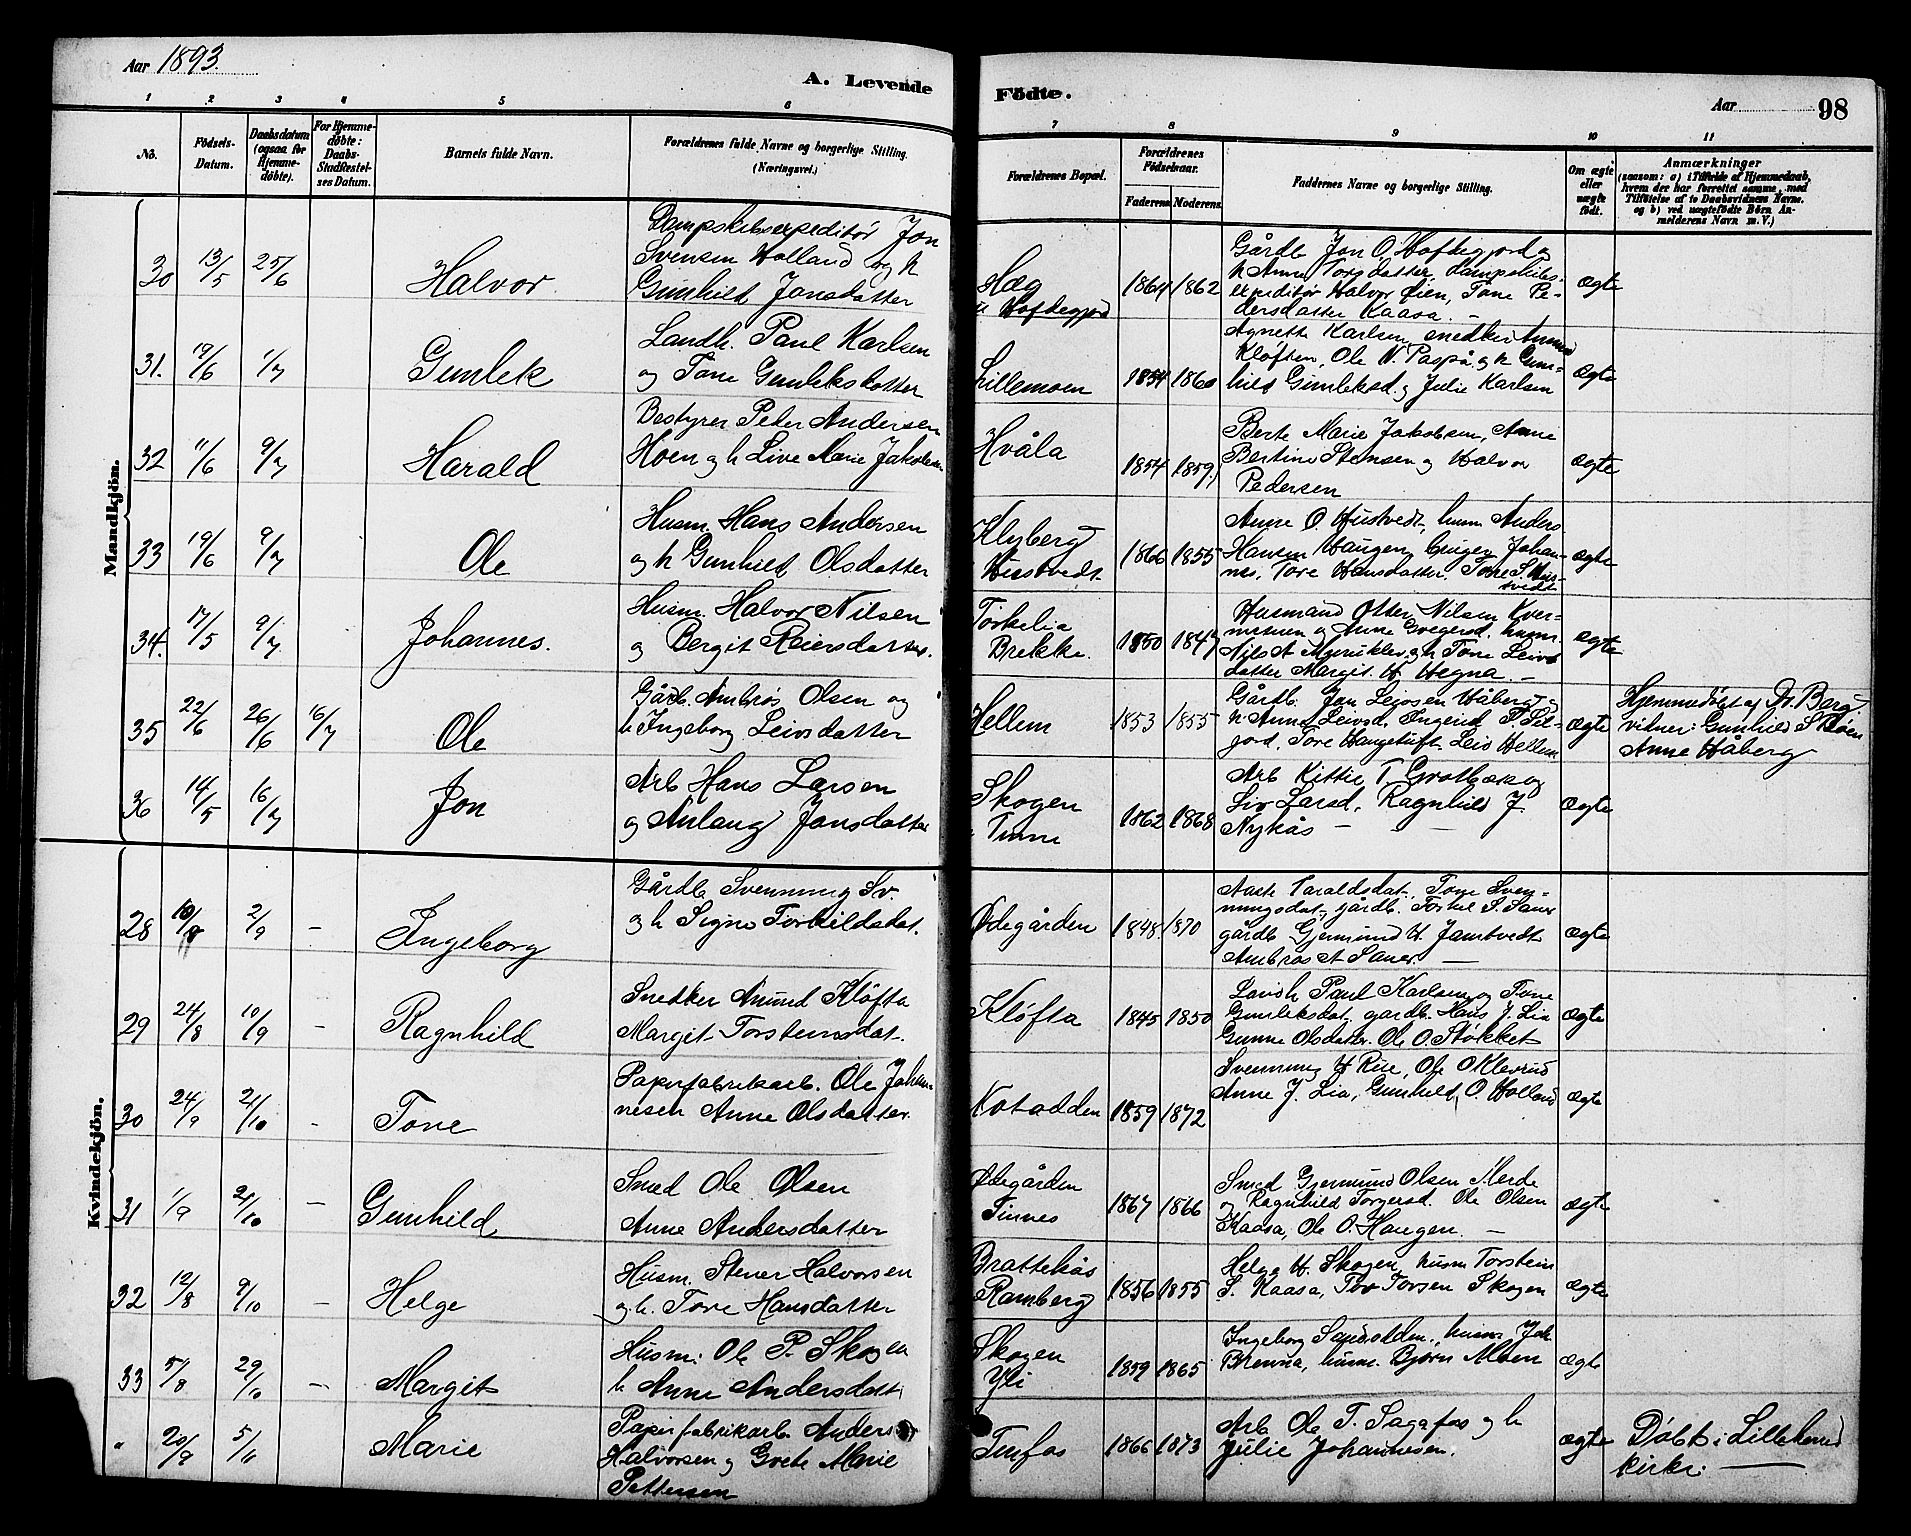 Aar 1893.
A. Levende
1 2 3 4 5 6
No.
Födsels-Datum.
Daabsdatum (ogsaa for Hjemme-döbte).
For Hjemme-döbte: Daabs-Stadfæstelses Datum.
Barnets fulde Navn.
Forældrenes fulde Navne og borgerlige Stilling.
(Næringsvei.)
Mandkjön.
30 13/5 25/6 Halvor.
Dampskibsexpeditör Jon
Svensen Holland og h
Gunhild Jonsdatter
31. 19/6 1/7 Gunlek
Landh. Paul Karlsen
og Tone Gunleksdatter
32 11/6 9/7 Harald
Bestyrer Peter Andersen
Hoen og h Live Marie Jakobsen
33 19/6 9/7 Ole
Husm. Hans Andersen
og h Gunhild Olsdatter
34. 17/5 9/7 Johannes.
Husm. Halvor Nilsen
og Bergit Reiersdatter.
35 22/6 26/6 16/7 Ole
Gårdb. Ambros Olsen og
h Ingeborg Leivsdatter
36 14/5 16/7 Jon
Arb Hans Larsen
og Anlaug Jonsdatter
Kvindekjön.
28 2/9 - Ingeborg
Gårdb Svenning Sv.
og h Signe Torkildsdat.
29 24/8 10/9 - Ragnhild
Snedker Anund Kløfta
Margit Torsteinsdat.
30 24/9 2/10 - Tone
Papirfabrikarb. Ole Johan-
nesen Anne Olsdatter
31 1/9 2/10 - Gunhild
Smed Ole Olsen
Anne Andersdatter
32 12/8 9/10 - Helge
Husm. Stener Halvorsen
og h. Tone Hansdatter
33 5/8 29/10 - Margit
Husm: Ole P. Skogen
h Anne Andersdatt
" 20/9 5/11 Marie
Papirfabrikarb Anders
Halvorsen og Grete Marie
Pettersen
Födte.
Aar 98
7 8 9 10 11
Forældrenes Bopæl.
Forældrenes Födselsaar.
Faderens Moderens
Faddernes Navne og borgerlige Stilling.
Om ægte eller uægte födt.
Anmærkninger
(saasom: a) i Tilfælde af Hjemmedaab,
hvem der har forrettet samme, med
Tilföielse af to Daabsvidners Navne.
og b) ved uægtefödte Börn An-
melderens Navn m. V.)
Hæg
u Hoftegjord
1864 1862
Gårdb Jon O. Hoftegjord og
h Anne Torsdatter, Dampskibs-
expeditör Halvor Øien, Tone Pe-
dersdatter Kaasa. -
ægte
Lillemoen
1854 1860
Agnette Karlsen, snedker Anund
Kløften, Ole N. Paspå og h Gun-
hild Gunleksd. og Julie Karlsen
ægte
Hvåla
1854 1859,
Berte Marie Jakobsen, Anne
Bertine Stensen og Halvor
Pedersen
ægte
Klyberg
Hustvedt
1866 1855
Anne O. Hustvedt, husm. Anders
Hansen Haugen, Johan-
nes, Tore Hansdatter. Tone S. Hus-
tvedt
ægte
Torkelia
Brekke.
1850 1847
Husmand Otter Nilsen Kver-
Anne Gregersd. husm.
Nils A og h Tone Leivs
datter Margit H Hegna. -
ægte
Hellem
1853 1855
Gårdb. Jon Leivsen Håberg og
h Anne Leivsd. Ingerid P. Sel-
jord, Tore Leiv Hellem
ægte
Hjemmedöbt af Dr. Berg.
vidner: Gunhild S
Anne Håberg
Skogen
Tinne
1862 1868
Arb Kittil T. Grotbæk og
Liv Larsd. Ragnhild J.
Nykås - -
ægte
Ødegården
1848 1870
Aaste Taraldsdat. Tone Sven-
ningsdat, gårdb. Torkel S. Sauer
gårdb Gjermund H. Jamtvedt
Ambros A Sauer. -
ægte
Kløfta
1845 1850
Landh Paul Karlsen og Tone
Gunleksdat. gardb. Hans J. Lia
Gunne Olsdatter. Ole O Støkket
ægte
Notodden
1859 1872
Svenning H Rue, Ole O Klevrud
Anne J. Lia, Gunhild O. Holland
ægte
Ødegården
Tinnes
1867 1866
Smed Gjermund Olsen Merde
og Ragnhild Torgersd. Ole Olsen
Kaasa, Ole O. Haugen. -
ægte
Brattekås
Ramberg
1856 1855
Helge H. Skogen, husm Torstein
S. Kaasa, Tov Torsen Skogen
ægte
Skogen
Yli
1859 1865
Ingeborg husm Joh
Brenna, husm. Bjørn Moen
ægte
Tinfos
1866 1873
Arb Ole T. Sagafos og h
Julie Johannesen.
ægte
Döbt i Lilleherred
kirke. -